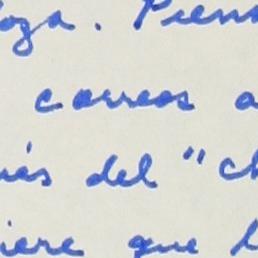 oga. Piens
correos a
ués del "ch
iere que l